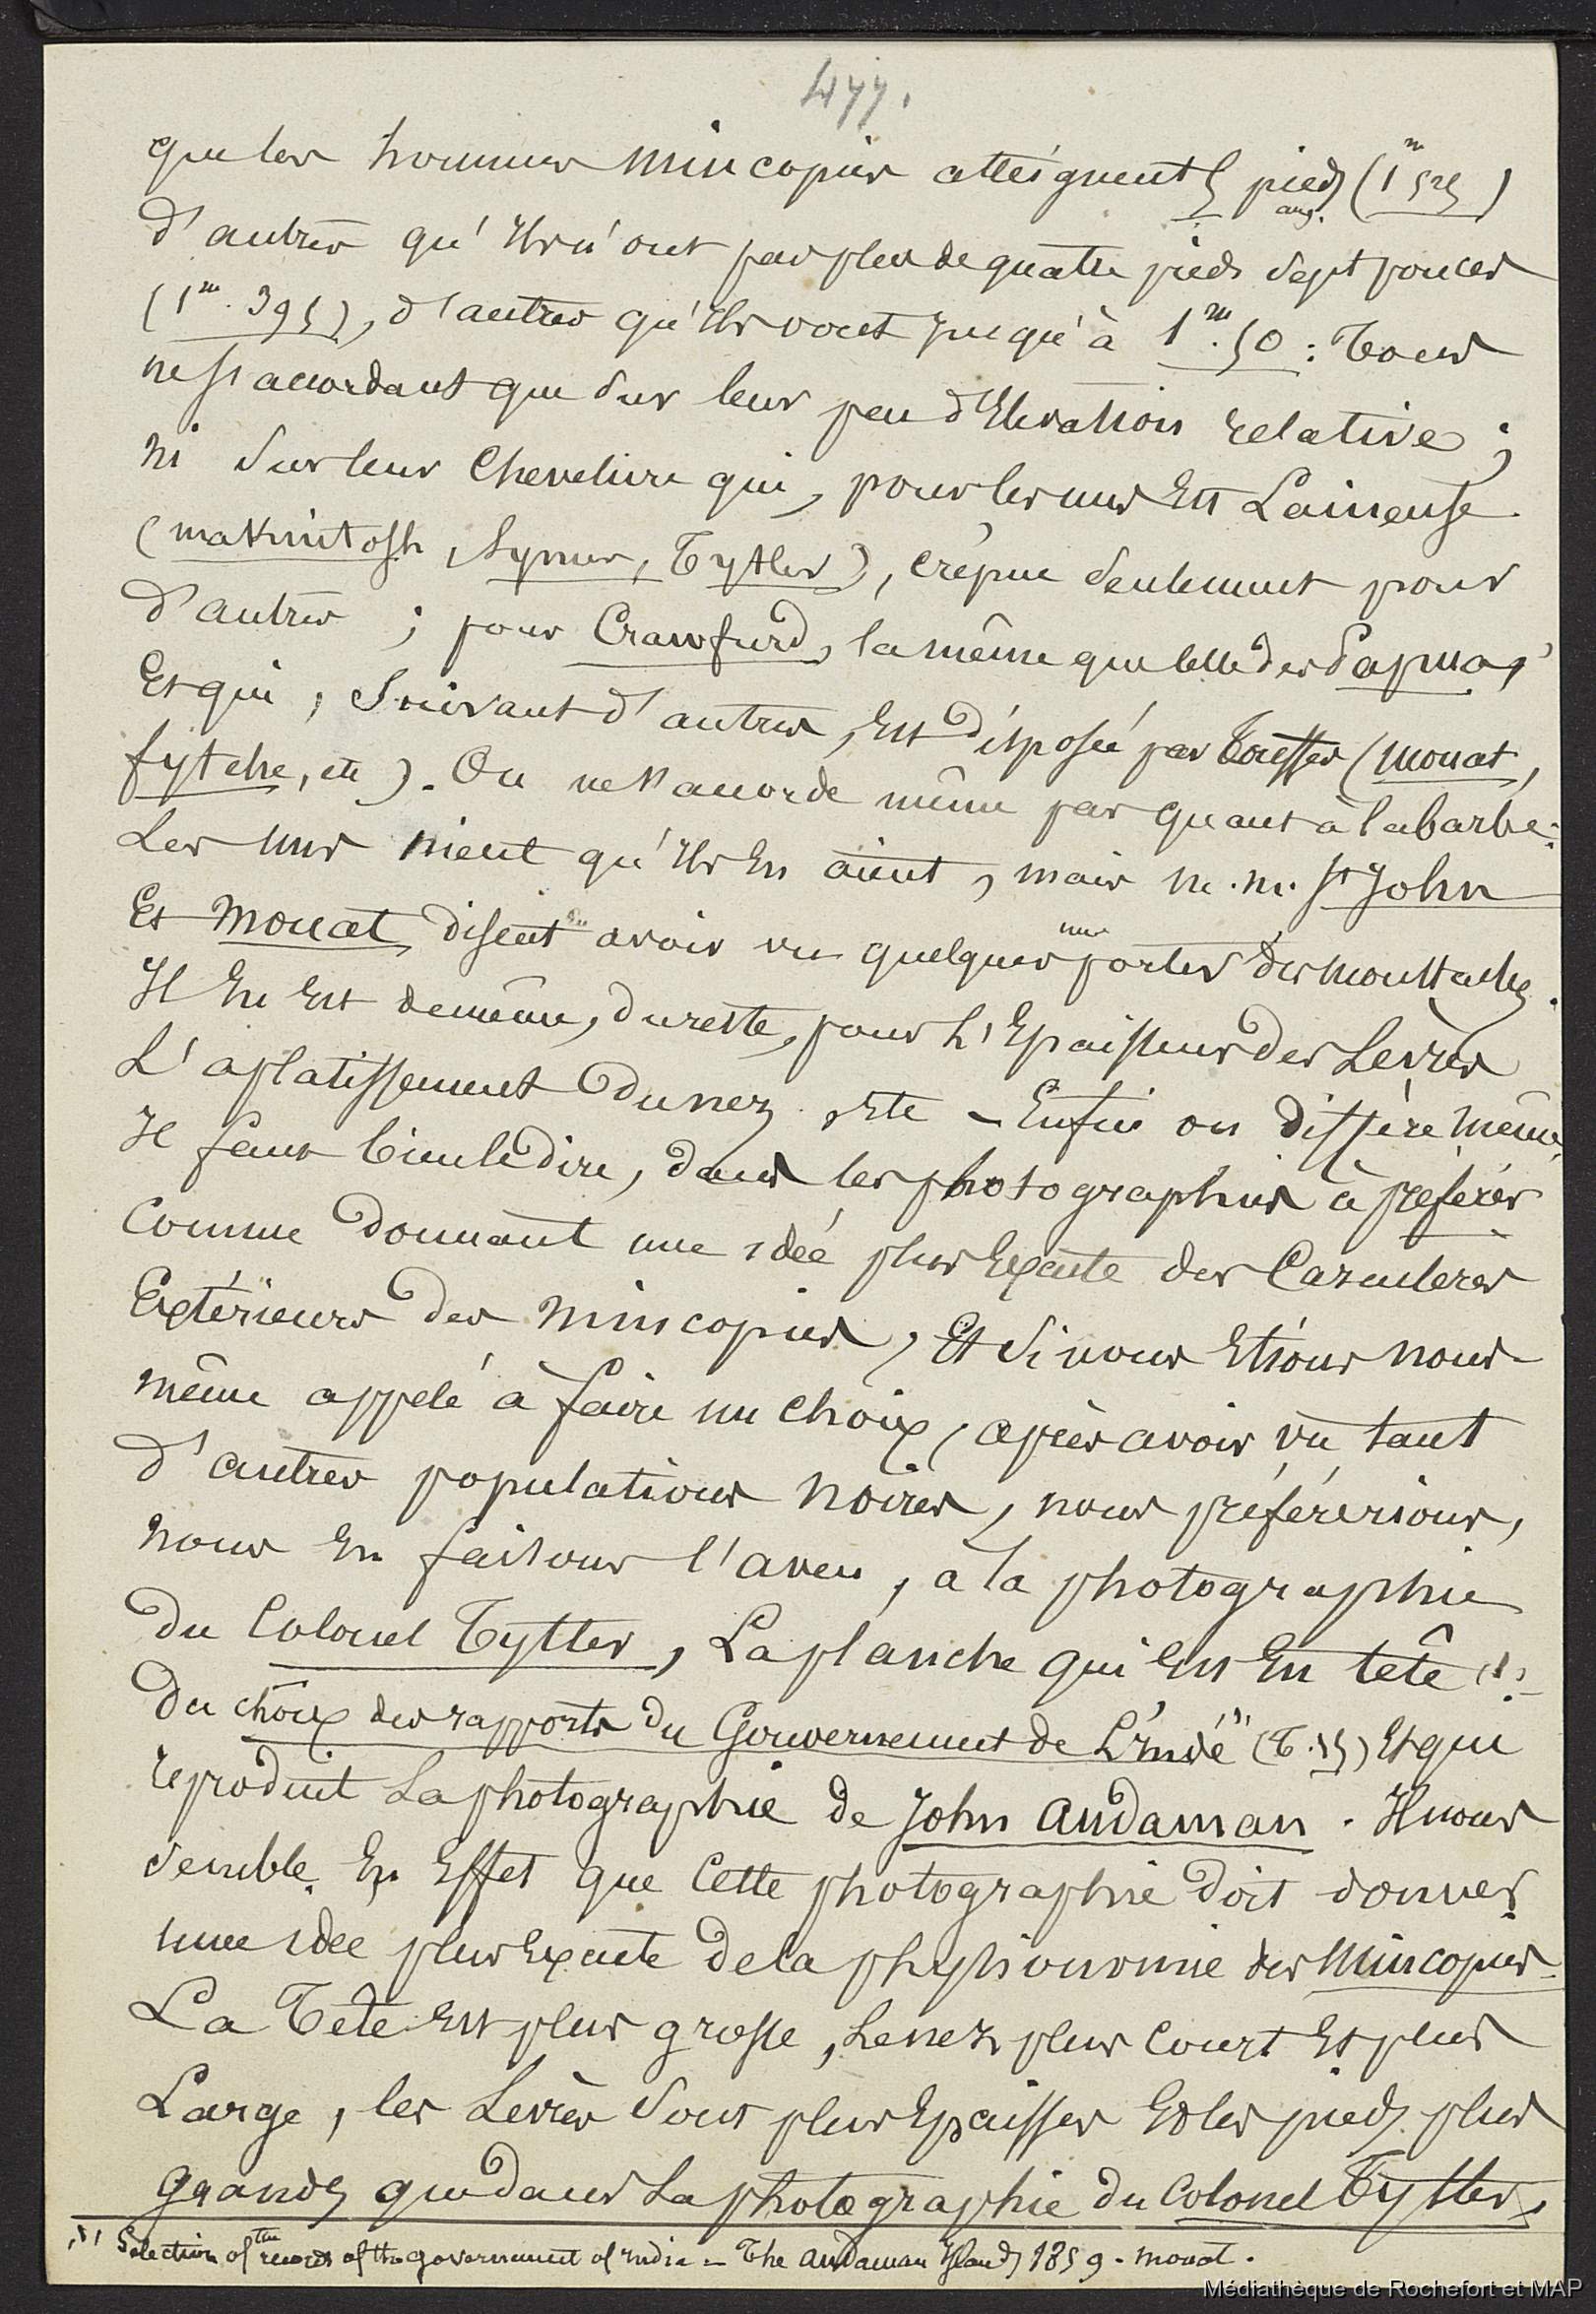 477.
que les hommes Mincopies atteignent 5 pieds (1m 525)
ang.
d'autres qu'ils n'ont pas plus de quatre pieds sept pouces
(1m. 395), d'autres qu'ils vont jusqu'à 1m.50 : Tous
ne s'accordant que sur leur peu d'Elevation relative ;
ni sur leur Chevelure qui, pour les uns Est Laineuse
(Makintosh, Symes, Tytler), crépue seulement pour
d'autres ; pour Crawfurd, la même que celle des Papuas,
Et qui, Suivant d'autres, Est disposée par Touffes (Mouat,
fytche, etc). On ne s'accorde même pas quant à la barbe :
Les uns nient qu'ils En aient, mais M.M. St John
Et Mouat disent avoir vu quelques uns porter des moustaches.
Il En Est de même, du reste, pour L'Epaisseur des Levres
L'aplatissement du nez, Etc – Enfin on diffère même,
Il faut bien le dire, dans les photographies à préférer
Comme donnant une idée plus Exacte des Caracteres
Extérieurs des Mincopies, Et si nous Etions nous
même appelé à faire un choix, après avoir vu tant
d'autres populations noires, nous préférerions,
nous En faisons l'aveu, à la photographie
du Colonel Tytler, La planche qui Est En tête (1)
du choix des rapports du Gouvernement de L'Inde" (T. 25) Et qui
reproduit La photographie de John Andaman. Il nous
semble En Effet que Cette photographie doit donner
une idée plus Exacte de la physionomie des Mincopies.
La Tête Est plus grosse, Le nez plus Court Et plus
Large, les Levres sont plus Epaisses Et les pieds plus
grands que dans La photographie du Colonel Tytler.
(1) Selection of the records of the government of india – The Andaman Islands 1859. Mouat.
Médiathèque de Rochefort et MAP